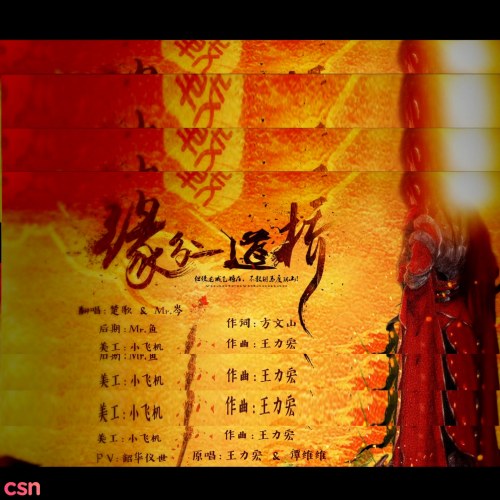 缘分一道桥
但使龙城飞将在，不教胡马度阴山！
翻唱：& Mr.岑
后期：Mr.鱼 作词：方文山
美工：小飞机 作曲：王力宏
后期：Mr.鱼
美工：小飞机 作曲：王力宏
美工：小飞机 作曲：王力宏
美工：小飞机 作曲：王力宏
PV：韶华仪世 原唱：王力宏 & 谭维维
csn